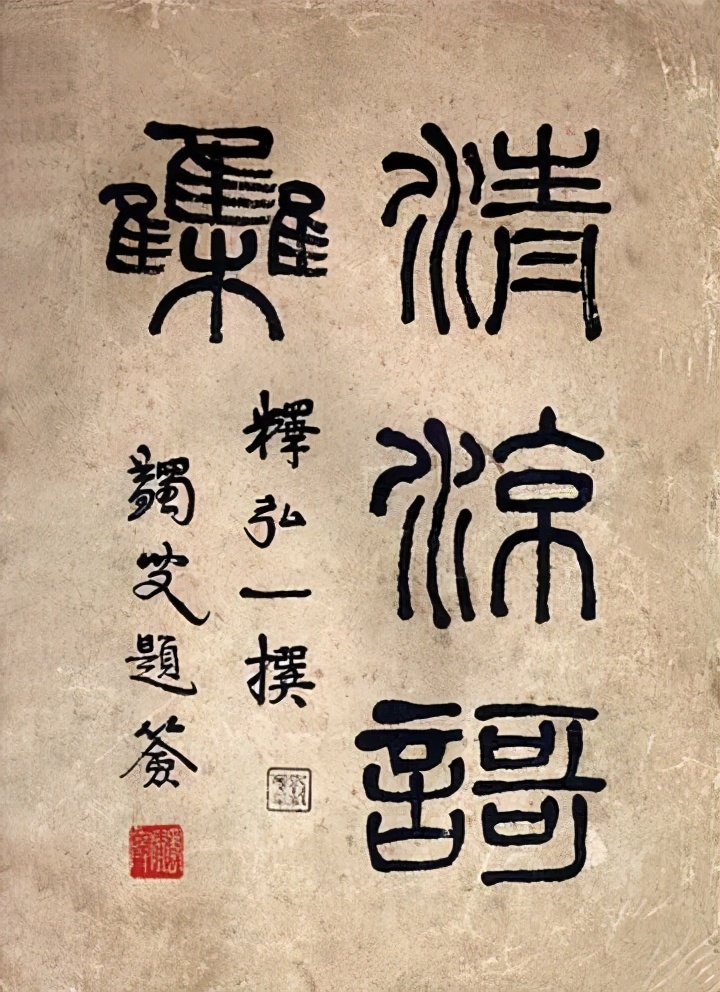 清涼謌
雧
釋弘一撰
蠲叟題簽